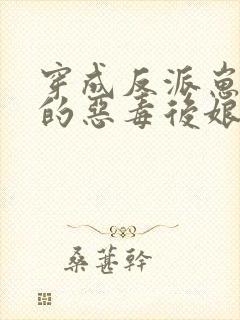 穿成反派崽
的惡毒後娘
桑葚幹